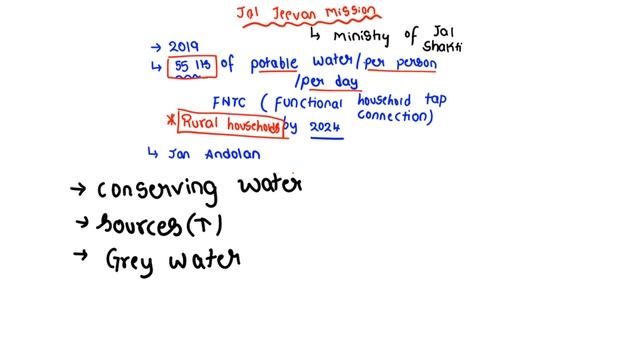 Jal Jeevan Mission
↳ Ministry of Jal Shakti
→ 2019
↳ 55 lts of potable water/per person
/per day
FNTC (Functional household tap connection)
* Rural households by 2024
↳ Jan Andolan
→ Conserving water
→ Sources(↑)
→ Grey water